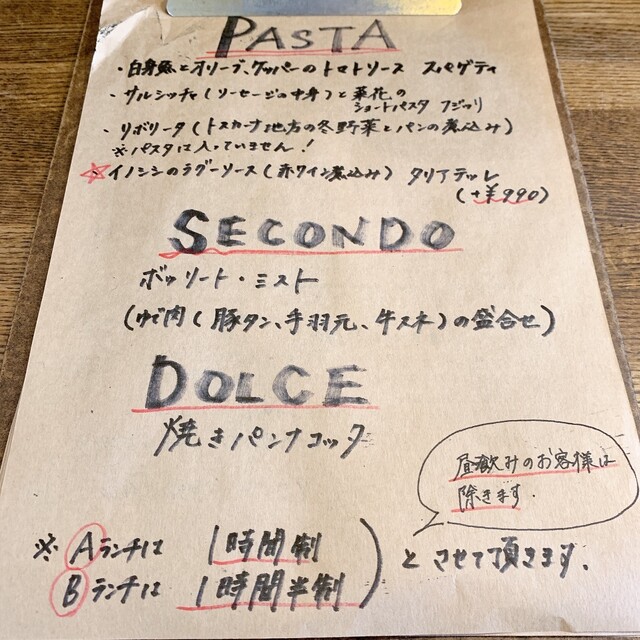 PASTA
・白身魚とオリーブ、ケッパーのトマトソース スパゲティ
・サルシッチャ(ソーセージの中身)と菜花の
ショートパスタ フジッリ
・リボリータ(トスカーナ地方の冬野菜とパンの煮込み)
※パスタは入っていません!
☆イノシシのラグーソース(赤ワイン煮込み) タリアテッレ
(+¥990)
SECONDO
ボッリート・ミスト
(ゆで肉(豚タン、手羽元、牛スネ)の盛合せ)
DOLCE
焼きパンナコッタ
昼飲みのお客様は
除きます.
※ Aランチは 1時間制
Bランチは 1時間半制
とさせて頂きます.